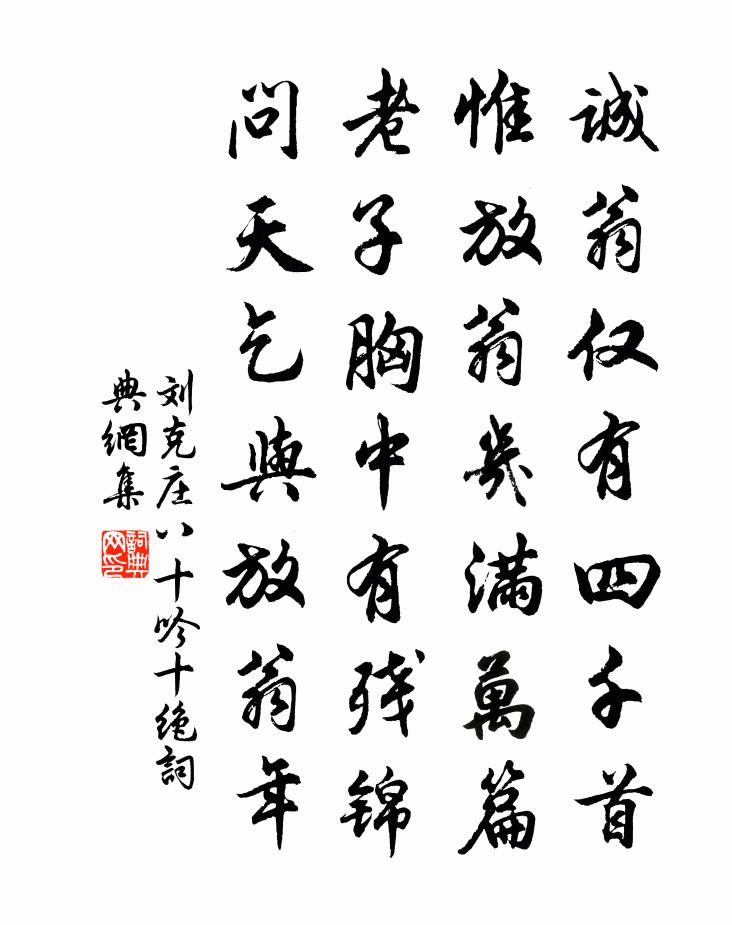 誠翁仅有四千首
惟放翁幾满萬篇
老子胸中有残锦
問天乞與放翁年
刘克庄八十吟十绝詞
典網集
詞典网印